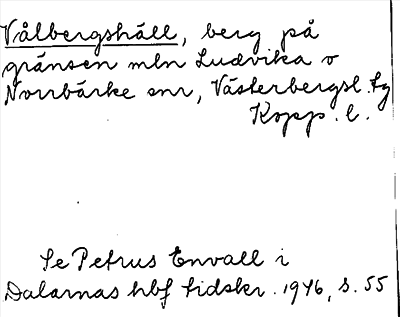 Vålbergshäll, berg på
gränsen mln Ludvika o
Norrbärke snr, Västerbergsl. fg
Kopp. l.
Se Petrus Envall i
Dalarnas hbf tidskr. 1946, s. 55